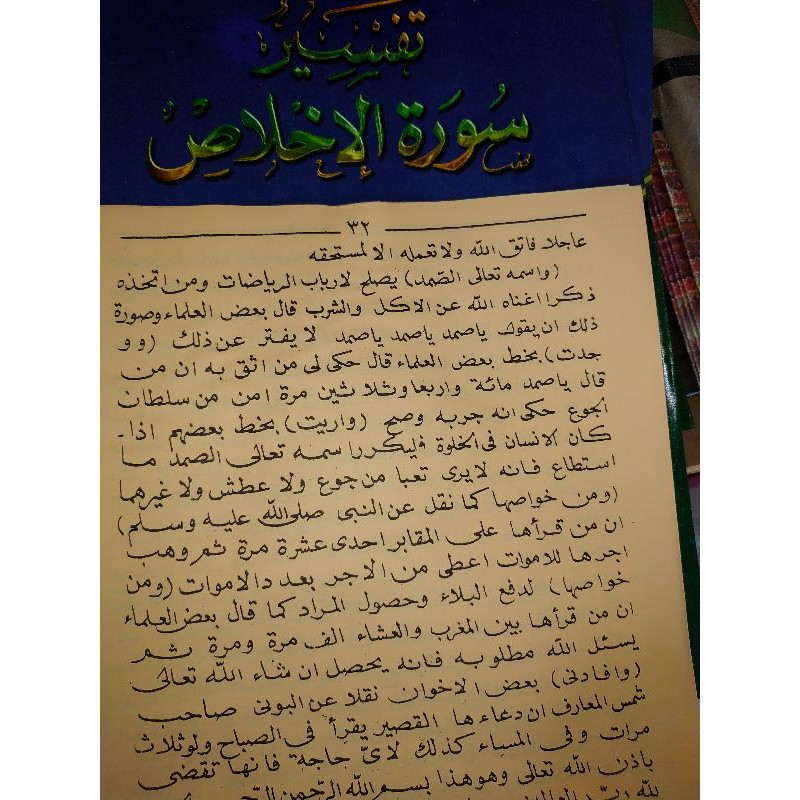 تفسير
سورة الإخلاص
٣٢
عاجلا فاتق الله ولا تعمله الا لمستحقه
(واسمه تعالى الصّمد) يصلح لارباب الرياضات ومن اتخذه
ذكرا اغناه الله عن الاكل والشرب قال بعض العلماء وصورة
ذلك ان يقول ياصمد ياصمد ياصمد لا يفتر عن ذلك (وو
جدت) بخط بعض العلماء قال حكى لى من اثق به ان من
قال ياصمد مائة واربعا وثلاثين مرة امن من سلطان
الجوع حكى انه جربه وصح (واريت) بخط بعضهم اذا
كان الانسان فى الخلوة فليكرر اسمه تعالى الصمد ما
استطاع فانه لا يرى تعبا من جوع ولا عطش ولا غيرها
(ومن خواصها كما نقل عن النبى صلى الله عليه وسلم)
ان من قرأها على المقابر احدى عشرة مرة ثم وهب
اجرها للاموات اعطى من الاجر بعدد الاموات (ومن
خواصها) لدفع البلاء وحصول المراد كما قال بعض العلماء
ان من قرأها بين المغرب والعشاء الف مرة ومرة ثم
يسئل الله مطلوبه فانه يحصل ان شاء الله تعالى
(وافادنى) بعض الاخوان نقلا عن البونى صاحب
شمس المعارف ان دعاءها القصير يقرأ فى الصباح ولو ثلاث
مرات وفى المساء كذلك لاىّ حاجة فانها تقضى
باذن الله تعالى وهو هذا بسم الله الرّحمن الرّحيم
لله ربّ العالمين